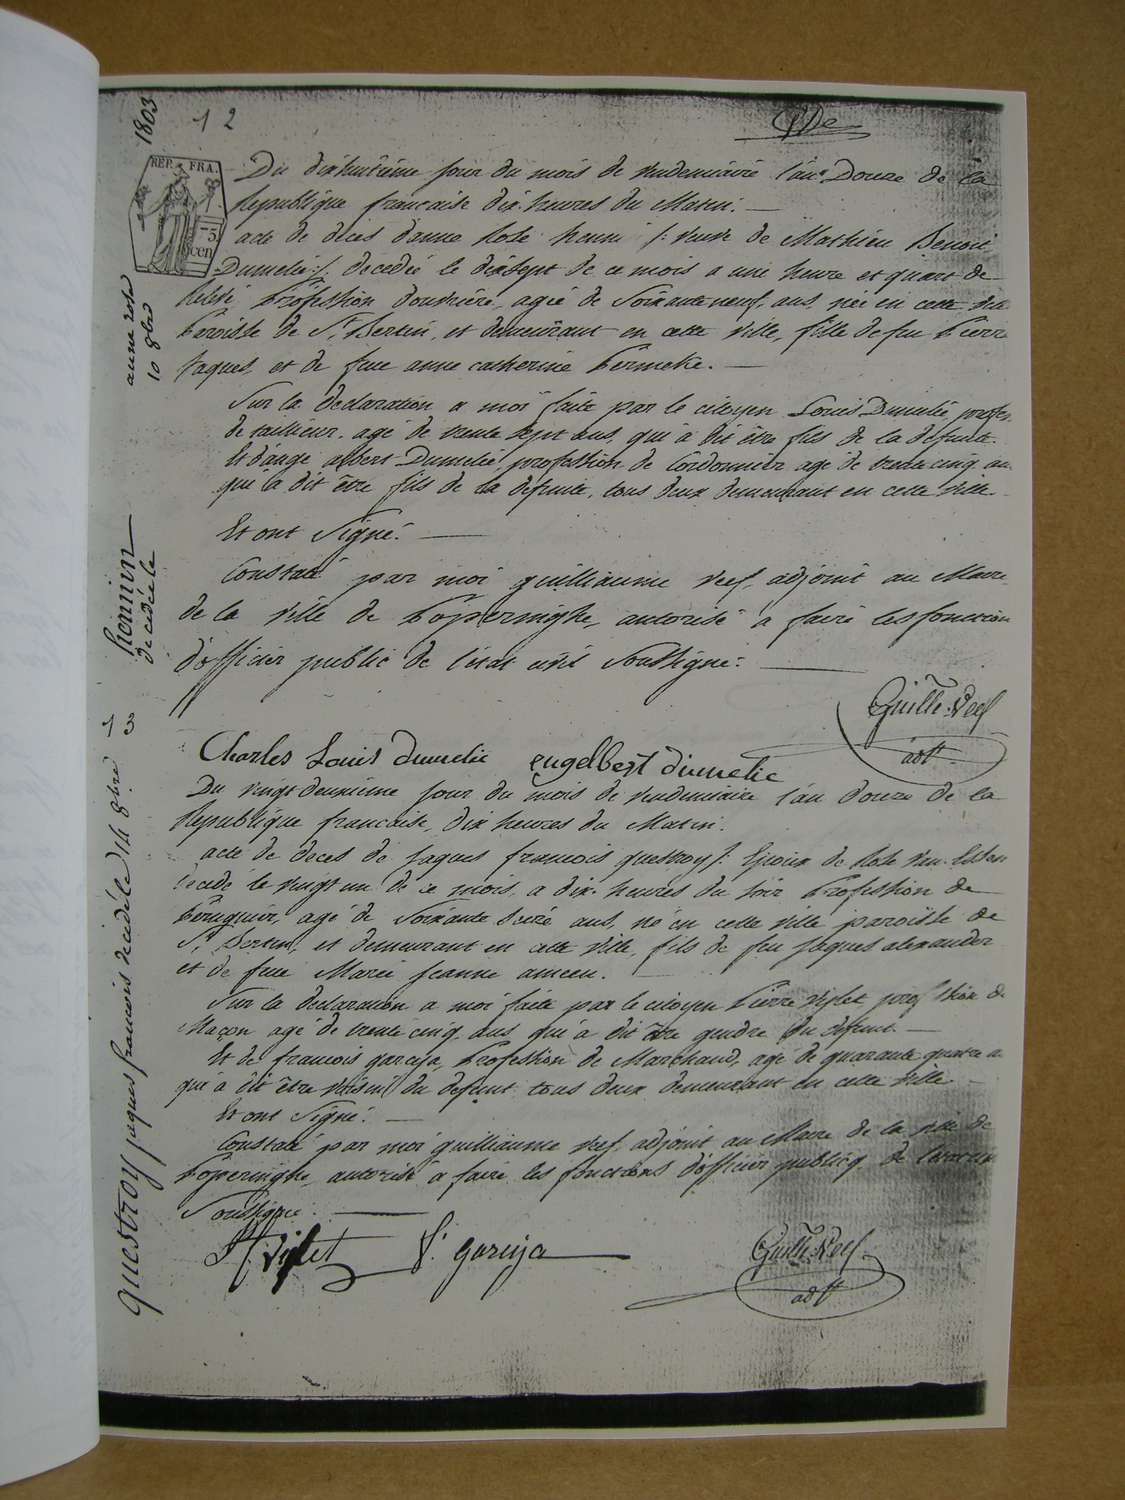 1803
12
REP. FRA.
5
cen
Du dixhuitième jour du mois de vendemiaire l'an Douze de la
Republique francaise dix heures du Matin.
acte de deces d'anne Rose henni /: veuve de Mathieu Benoit
Dumelie :/ decedée le dixsept de ce mois a une heure et quart de
profession agée de Soixante neuf ans, née en cette ville
Paroisse de St Bertin, et demeurant en cette ville, fille de feu Pierre
Jaques, et de feue anne catherine
Sur la declaration a moi faite par le citoyen Louis Dumelie profes.
de tailleur, agé de trente sept ans, qui a dit être fils de la defunte
Et d'ange albert Dumelie, profession de Cordonnier agé de trente cinq an
qui a dit être fils de la defunte, tous deux demeurant en cette ville.
Et ont Signé.
Constaté par moi guilliaume Veef, adjoint au Maire
de la ville de Poperinghe, autorisé a faire les fonction
d'officier public de l'etat civil Soussigné.
Guille. Veef
adt
anne rose
10 8bre
hennin
decedée le
13
Charles Louis dumelie engelbert dumelie
Du vingt deuxieme jour du mois de vendemiaire l'an douze de la
Republique francaise, dix heures du Matin.
acte de deces de Jaques francois questroy /: Epoux de Rose
decedé le vingt un de ce mois, a dix heures du soir Profession de
Peruquier, agé de Soixante ans, né en cette ville paroisse de
St Bertin, et demeurant en cette ville, fils de feu Jaques alexander
et de feue Marie Jeanne
Sur la declaration a moi faite par le citoyen Pierre Viflet profession de
Maçon agé de trente cinq ans qui a dit être gendre du defunt.
Et de francois garcija, Profession de Marchand, agé de quarante quatre a
qui a dit être voisin du defunt tous deux demeurant en cette ville
Et ont Signé.
Constaté par moi guilliaume Veef, adjoint au Maire de la ville de
Poperinghe, autorisé a faire les fonctions d'officier publicq de
Soussigné.
Viflet f. garcija
Guille. Veef
adt
questroy jaques francois decedé le 14 8bre